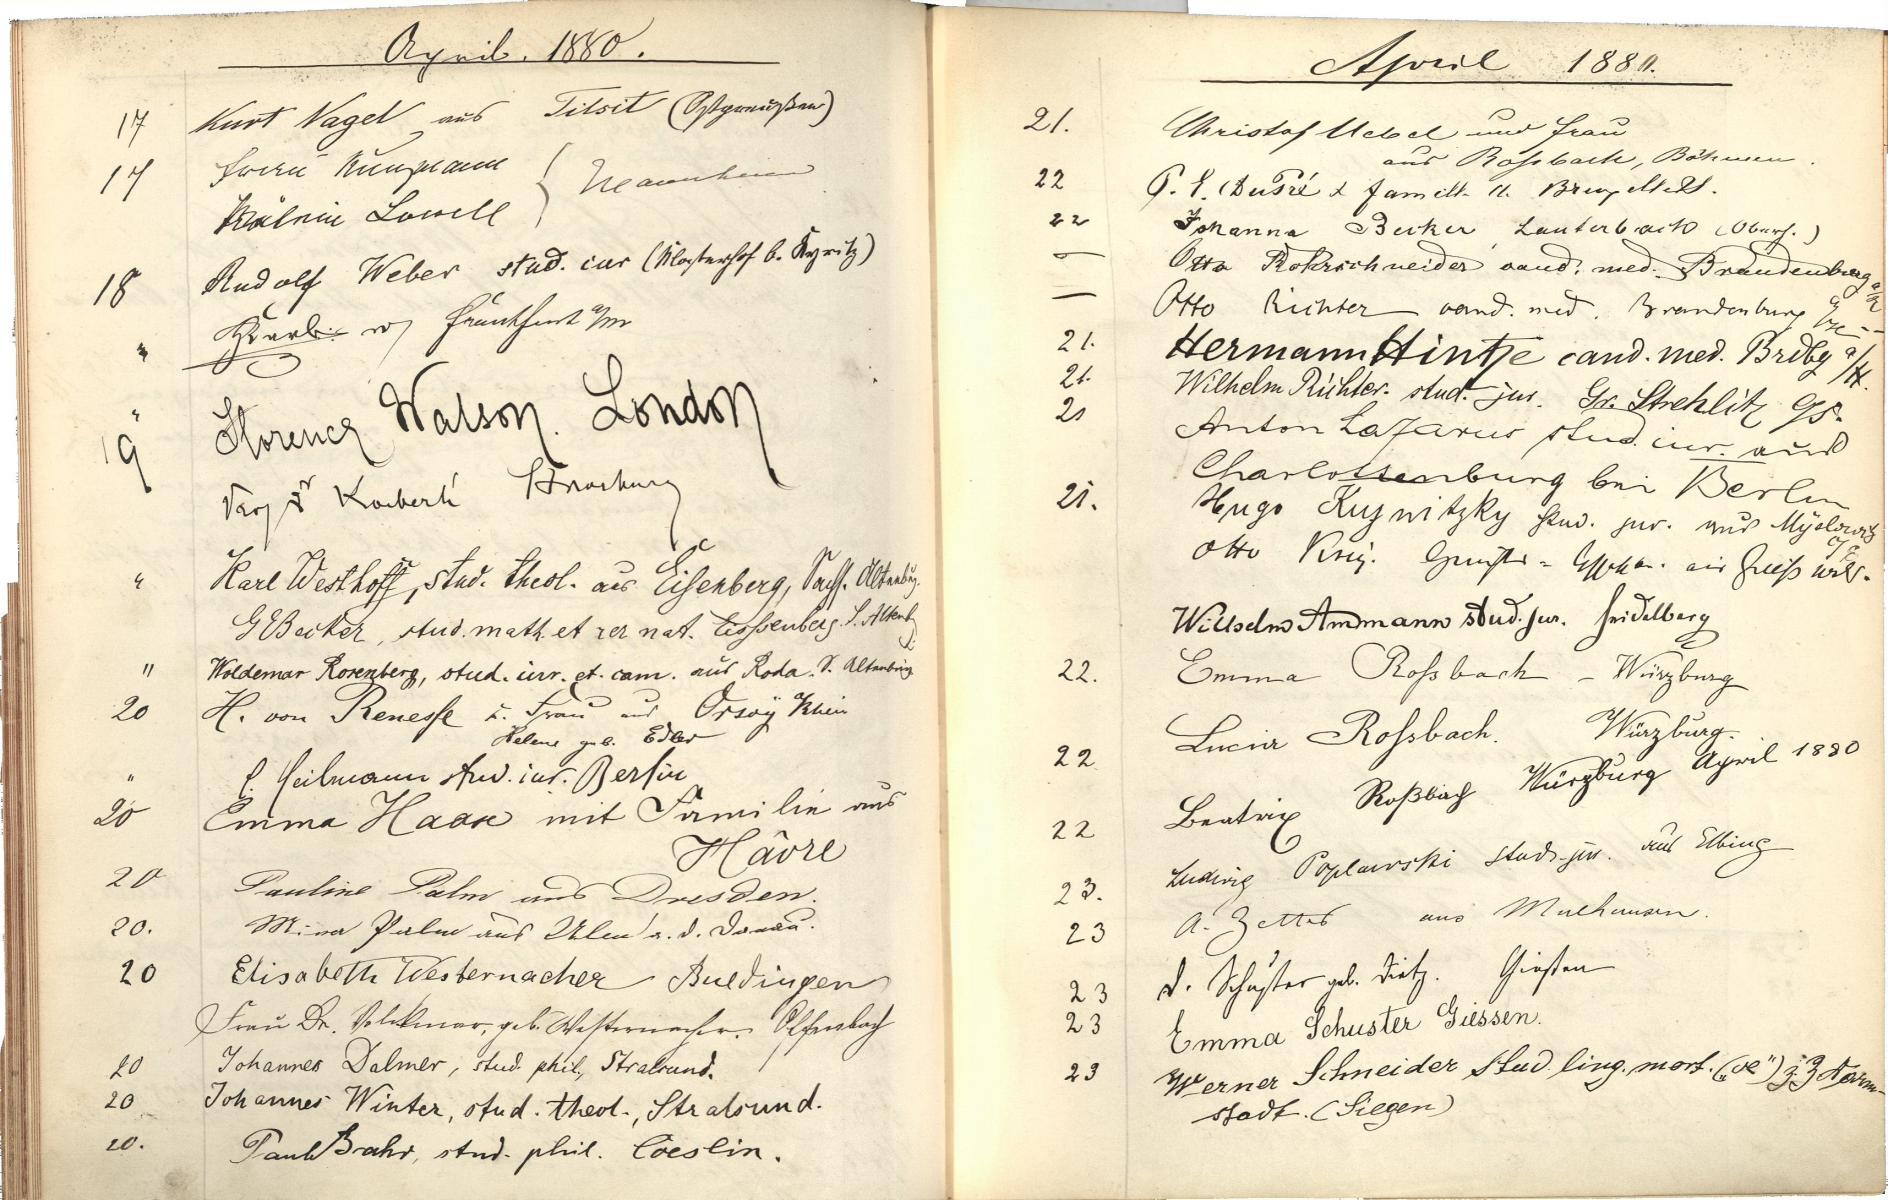 April. 1880.
17 Kurt Nagel aus Tilsit (Ostpreußen)
17
Lowell
18 Rudolf Weber stud. iur (Klosterhof b. Kyritz)
" Frankfurt a/m
" Florence Watson. London
19 Strassburg
" Karl Westhoff, stud. theol. aus Eisenberg, Sachs. Altenbg.
G Becker, stud. math. et rer nat. Eissenberg. S. Altenb.
" Woldemar Rosenberg, stud. iur. et. cam. aus Roda. S. Altenburg
20 H. von Renesse u. Frau aus Orsoy Rhein
Helene geb. Edler
" Heilmann stud. iur. Berlin
20 Emma Haase mit Familie aus
Hâvre
20 Pauline Palm aus Dresden.
20. Mina Palm aus Ulm a. d. Donau.
20 Elisabeth Westernacher Buedingen
Frau Dr. Volckmar, geb. Westernacher. Offenbach
20 Johannes Dalmer, stud. phil., Stralsund.
20 Johannes Winter, stud. theol., Stralsund.
20. Paul Brahr, stud. phil. Coeslin.
April 1880.
21. Christof Uebel und Frau
aus Rossbach, Böhmen.
22
22 Johanna Becker, Lauterbach (Oberh.)
— Otto Rohrschneider cand. med. Brandenburg a/H
— Otto Richter cand. med. Brandenburg
21. Hermann Hintze cand. med. Brdbg a/H.
21. Wilhelm Richter. stud. jur. Gr. Strehlitz O/S.
21 Anton Lazarus stud. iur. aus
Charlottenburg bei Berlin
21. Hugo Kuznitzky stud. jur. aus Myslowitz
O/S.
Otto
Wilhelm Ammann stud. jur. Heidelberg
22. Emma Rossbach – Würzburg
22 Lucie Rossbach. Würzburg.
22 Beatrix Roßbach Würzburg April 1880
23. Ludwig Poplawski stud. jur. aus Elbing
23 A. Zetter aus Mulhausen.
23 Schuster geb. Dietz. Giessen
23 Emma Schuster Giessen.
23 Werner Schneider stud. ling. mort. („ve") z. Z Darm-
stadt. (Siegen)